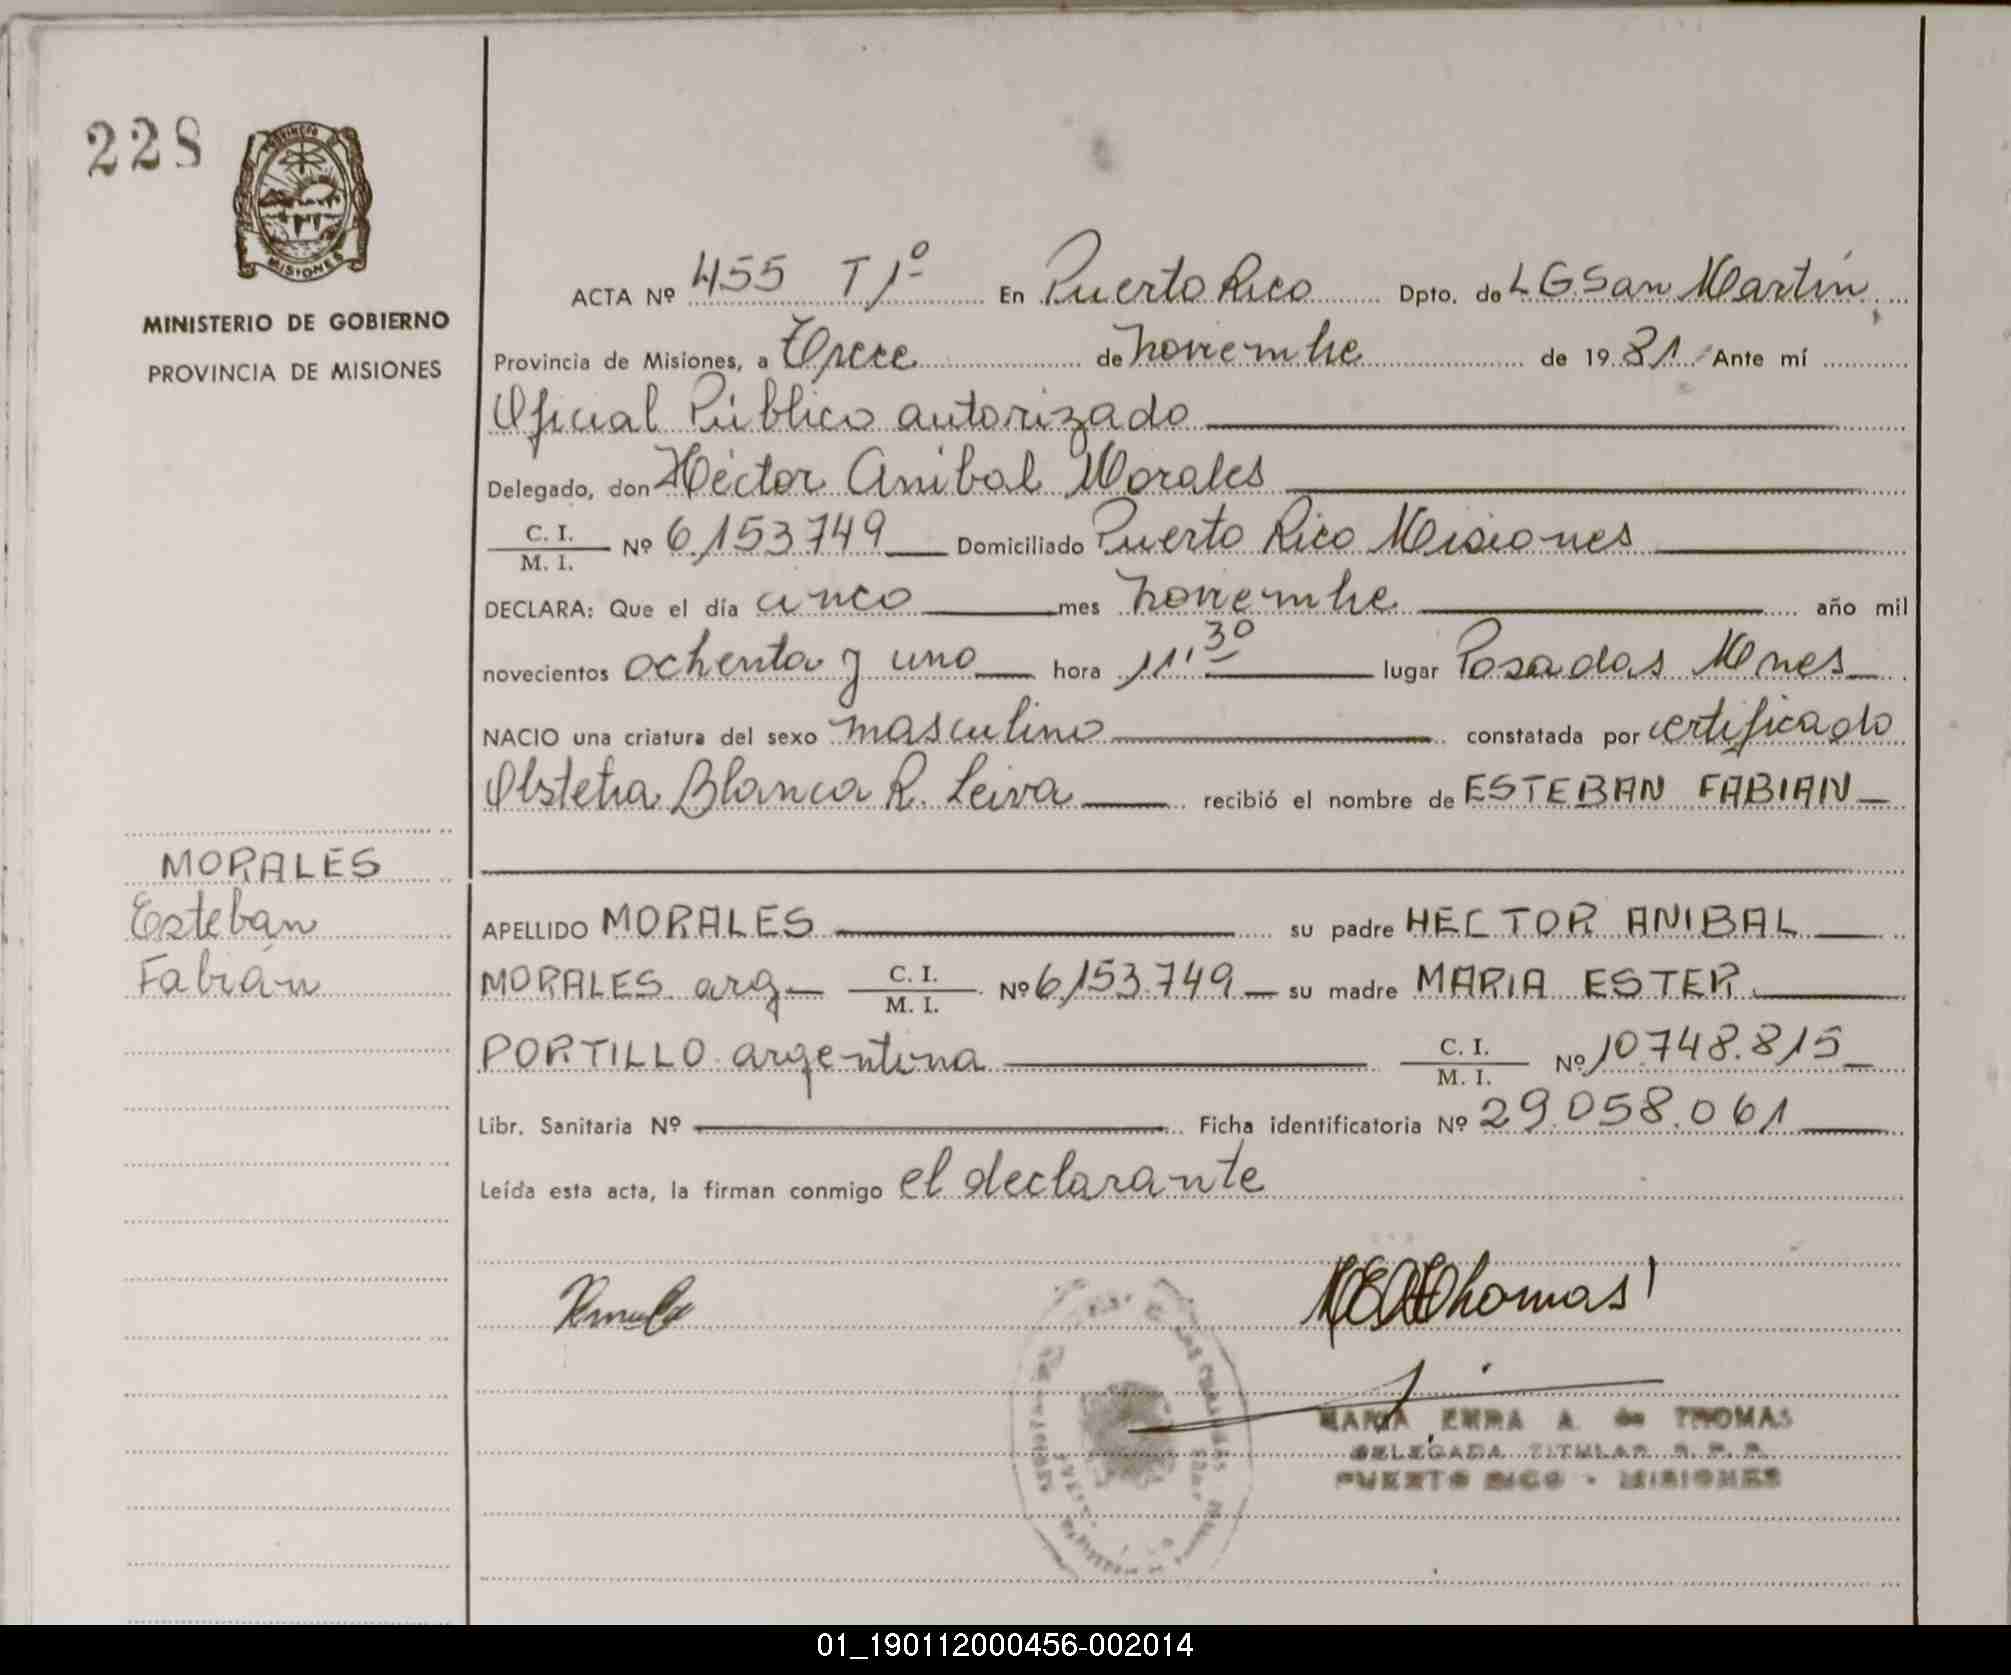 228
MISIONES
MINISTERIO DE GOBIERNO
PROVINCIA DE MISIONES
ACTA Nº 455 T 1º En Puerto Rico Dpto. de L G San Martín
Provincia de Misiones, a Trece de noviembre de 1981 Ante mí
Oficial Público autorizado
Delegado, don Héctor Anibal Morales
C. I. / M. I. Nº 6.153.749 Domiciliado Puerto Rico Misiones
DECLARA: Que el día cinco mes noviembre año mil
novecientos ochenta y uno hora 11,30 lugar Posadas Mnes
NACIO una criatura del sexo masculino constatada por certificado
Obstetra Blanca R. Leiva recibió el nombre de ESTEBAN FABIAN
MORALES
Esteban
Fabián
APELLIDO MORALES su padre HECTOR ANIBAL
MORALES arg C. I. / M. I. Nº 6.153.749 su madre MARIA ESTER
PORTILLO argentina C. I. / M. I. Nº 10.748.815
Libr. Sanitaria Nº Ficha identificatoria Nº 29.058.061
Leída esta acta, la firman conmigo el declarante
Thomas
MARIA EMMA A. de THOMAS
DELEGADA TITULAR R. P. P.
PUERTO RICO - MISIONES
01_190112000456-002014